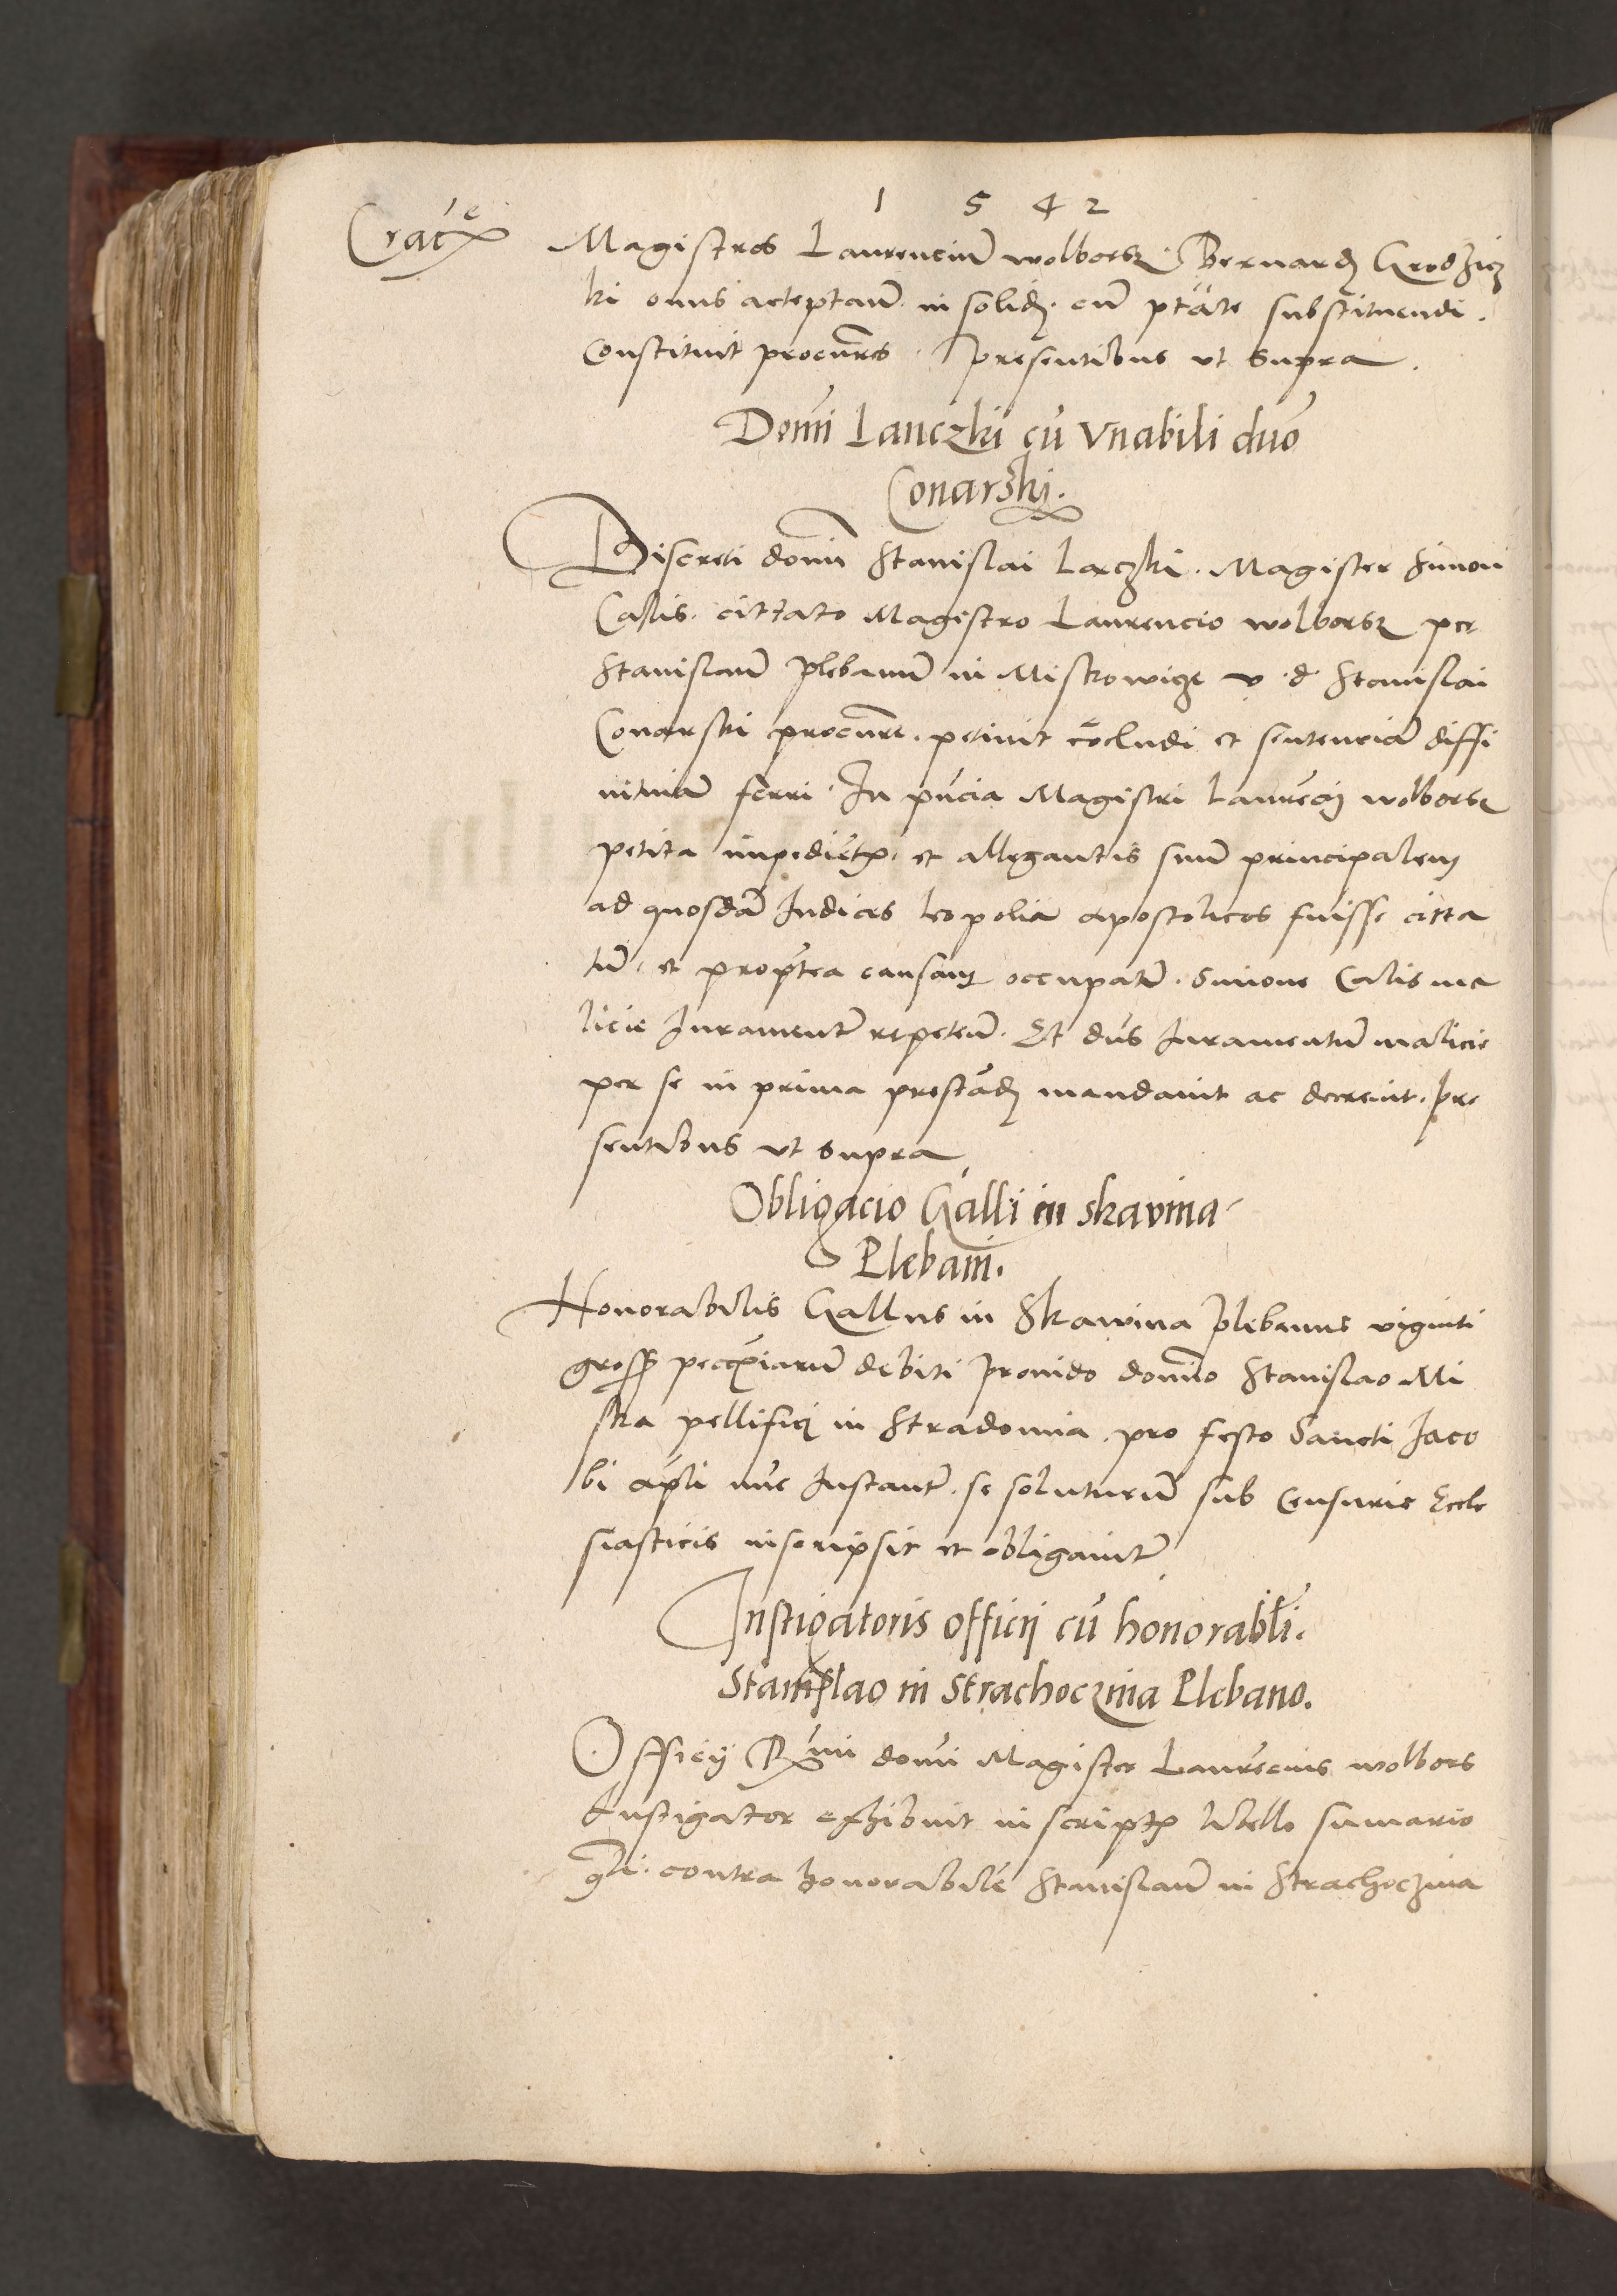 1 5 4 2
Crac̄e
Magistros Laurenciū wolbors Bernard Grodzicz
ki onus acceptan̄ in solid. cū ptāte substituendi.
Constituit procur̄es. presentibus ut supra.
Domī Lanczki cū Vnabili dn̄o
Conarski.
Discreti domī Stanislai Laczki. Magister Simon
Calis. cittato Magistro Laurencio wolbors per
Stanislaū plebanū in Mistrowicze v. d. Stanislai
Conarski procur̄e. petiuit cōcludi et sentenciā diffi
nitiuā ferri. In pn̄cia Magistri Laurēcij wolbors
petita impediēt. et allegantis suū principalem
ad quosdā Iudices leopoliā apostolicos fuisse citta
tū. et propterea causam occupatū. Simone Calis ma
licie Iuramentū repeten̄. Et dn̄s Iuramentum malicie
per se in prima prestād mandauit ac decreuit. Pre
sentibus ut supra
Obligacio Galli in skavina
Plebani.
Honorabilis Gallus in Skawina plebanus viginti
gross pecūiarū debiti prouido domino Stanislao Mi
ska pellifici in Stradomia. pro festo Sancti Iaco
bi apl̄i nūc Instanti. se soluturū sub Censuris Eccle
siasticis inscripsit et obligauit
Instigatoris officij cū honorabli.
Stanislao in Strachoczina Plebano.
Officij R̄mi domī Magister Laurēcius wolbors
Instigator exhibuit in script libello sumario
contra honorabilē Stanislaū in Strachoczina